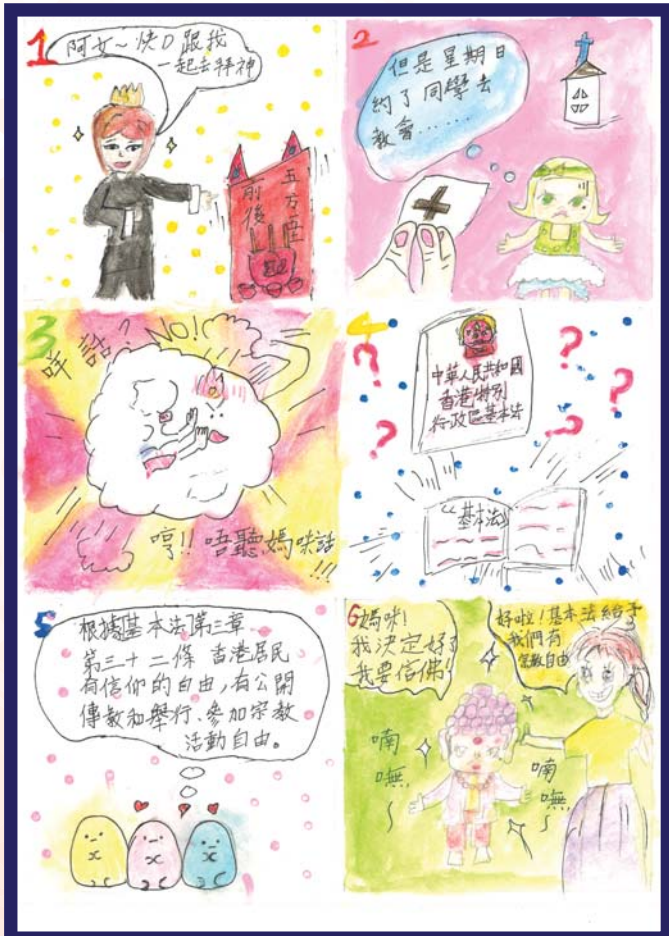 1
阿女～快D跟我
一起去拜神
五方五
前後
2
但是星期日
約了同學去
教會……
3
咩話?
NO!
哼!! 唔聽媽咪話
!!!
4
?
?
?
?
?
?
中華人民共和國
香港特別
行政區基本法
《基本法》
5
根據基本法第三章
第三十二條 香港居民
有信仰的自由,有公開
傳教和舉行、參加宗教
活動自由。
6
媽咪!
我決定好了
我要信佛!
好啦!基本法給予
我們有
宗教自由
喃
嘸
～
喃
嘸
～